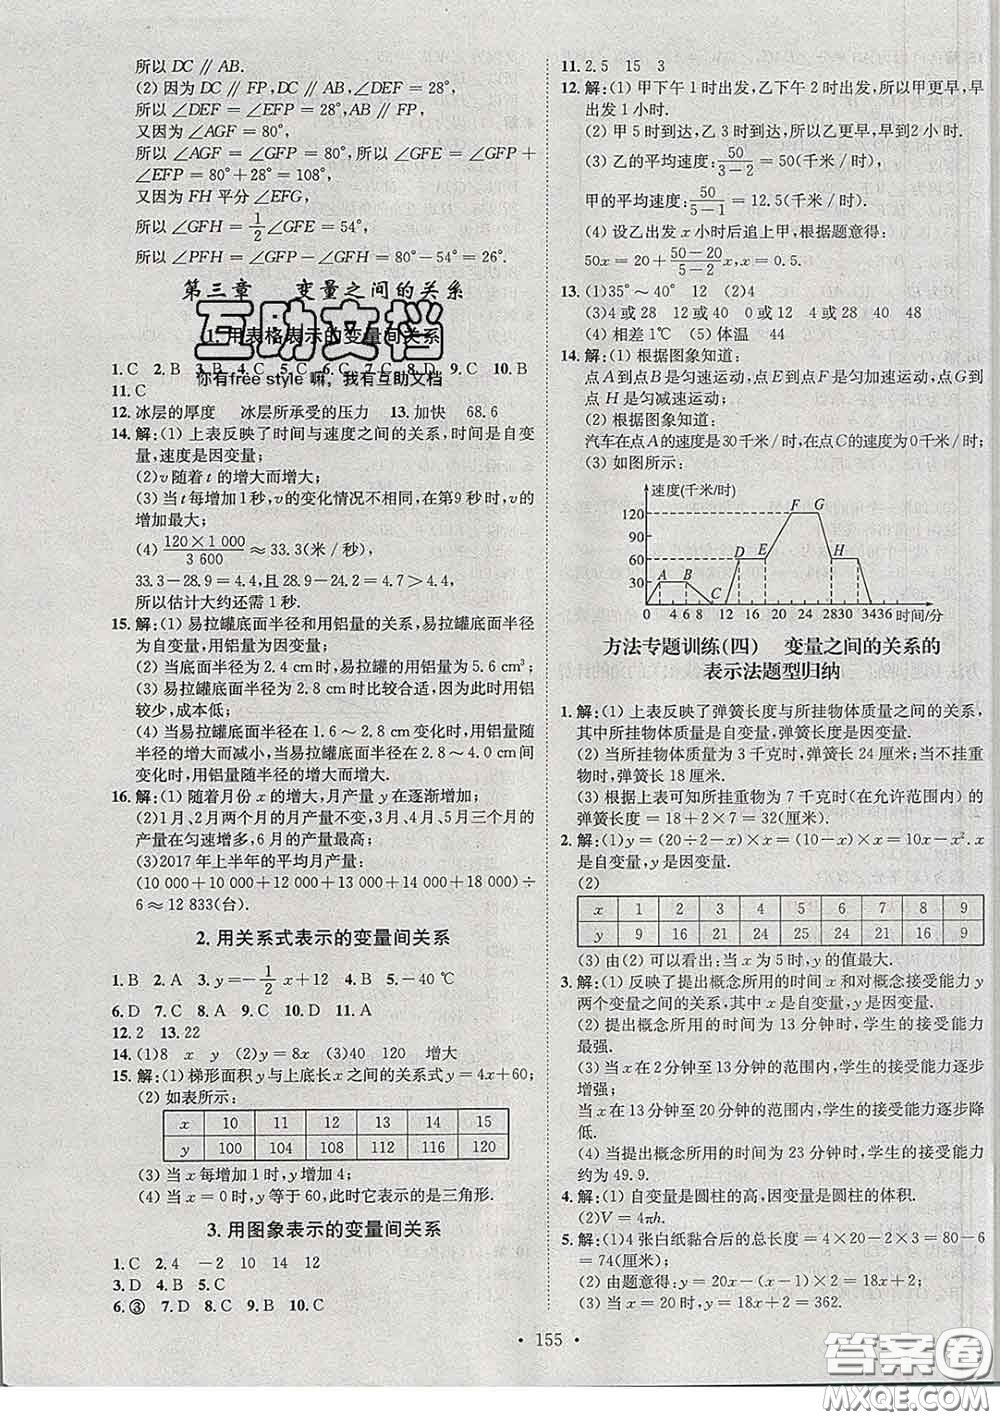 所以 DC∥AB.
(2) 因为 DC∥FP,DC∥AB,∠DEF=28°,
所以∠DEF=∠EFP=28°,AB∥FP,
又因为∠AGF=80°,
所以∠AGF=∠GFP=80°,所以∠GFE=∠GFP+
∠EFP=80°+28°=108°,
又因为 FH 平分∠EFG,
所以∠GFH=1/2∠GFE=54°,
所以∠PFH=∠GFP-∠GFH=80°-54°=26°.
第三章 变量之间的关系
1. 用表格表示的变量间关系
互助文档
你有free style 嘛，我有互助文档
1. C 2. B 3. B 4. C 5. C 6. C 7. C 8. D 9. C 10. B
11. C
12. 冰层的厚度 冰层所承受的压力 13. 加快 68.6
14. 解:(1) 上表反映了时间与速度之间的关系,时间是自变
量,速度是因变量.
(2)v 随着 t 的增大而增大;
(3) 当 t 每增加 1 秒,v 的变化情况不相同,在第 9 秒时,v 的
增加最大;
(4) 120×1 000/3 600≈33.3(米/秒),
33.3-28.9=4.4,且 28.9-24.2=4.7>4.4,
所以估计大约还需 1 秒.
15. 解:(1) 易拉罐底面半径和用铝量的关系,易拉罐底面半径
为自变量,用铝量为因变量.
(2) 当底面半径为 2.4 cm 时,易拉罐的用铝量为 5.6 cm³;
(3) 易拉罐底面半径为 2.8 cm 时比较合适,因为此时用铝
较少,成本低;
(4) 当易拉罐底面半径在 1.6～2.8 cm 变化时,用铝量随
半径的增大而减小,当易拉罐底面半径在 2.8～4.0 cm 间
变化时,用铝量随半径的增大而增大.
16. 解:(1) 随着月份 x 的增大,月产量 y 在逐渐增加;
(2)1月、2月两个月的月产量不变,3月、4月、5月三个月的
产量在匀速增多,6 月的产量最高;
(3)2017 年上半年的平均月产量:
(10 000+10 000+12 000+13 000+14 000+18 000)÷
6≈12 833(台).
2. 用关系式表示的变量间关系
1. B 2. A 3. y=-1/2 x+12 4. B 5. -40 ℃
6. D 7. C 8. A 9. C 10. D 11. A
12. 2 13. 22
14. (1)8 x y (2)y=8x (3)40 120 增大
15. 解:(1) 梯形面积 y 与上底长 x 之间的关系式 y=4x+60;
(2) 如表所示:
x 10 11 12 13 14 15
y 100 104 108 112 116 120
(3) 当 x 每增加 1 时,y 增加 4;
(4) 当 x=0 时,y 等于 60,此时它表示的是三角形.
3. 用图象表示的变量间关系
1. C 2. 4 -2 10 14 12
3. D 4. A 5. D
6. ③ 7. D 8. C 9. B 10. C
11. 2.5 15 3
12. 解:(1) 甲下午 1 时出发,乙下午 2 时出发,所以甲更早,早
出发 1 小时.
(2) 甲 5 时到达,乙 3 时到达,所以乙更早,早到 2 小时.
(3) 乙的平均速度:50/(3-2)=50(千米/时),
甲的平均速度:50/(5-1)=12.5(千米/时).
(4) 设乙出发 x 小时后追上甲,根据题意得:
50x=20+(50-20)/(5-2)x,x=0.5.
13. (1)35°～40° 12 (2)4
(3)4 或 28 12 或 40 0 或 12 40 或 48 28 48
(4) 相差 1℃ (5) 体温 44
14. 解:(1) 根据图象知道:
点 A 到点 B 是匀速运动,点 E 到点 F 是匀加速运动,点 G 到
点 H 是匀减速运动;
(2) 根据图象知道:
汽车在点 A 的速度是 30 千米/时,在点 C 的速度为 0 千米/时;
(3) 如图所示:
速度(千米/时)
120
90
60
30
0
A B C D E F G H
4 6 8 12 14 18 22 2830 3436 时间/分
方法专题训练(四) 变量之间的关系的
表示法题型归纳
1. 解:(1) 上表反映了弹簧长度与所挂物体质量之间的关系,
其中所挂物体质量是自变量,弹簧长度是因变量.
(2) 当所挂物体质量为 3 千克时,弹簧长 24 厘米;当不挂重
物时,弹簧长 18 厘米.
(3) 根据上表可知所挂重物为 7 千克时(在允许范围内)的
弹簧长度=18+2×7=32(厘米).
2. 解:(1)y=(20÷2-x)×x=(10-x)×x=10x-x². x
是自变量,y 是因变量.
(2)
x 1 2 3 4 5 6 7 8 9
y 9 16 21 24 25 24 21 16 9
(3) 由(2) 可以看出:当 x 为 5 时,y 的值最大.
3. 解:(1) 反映了提出概念所用的时间 x 和对概念接受能力 y
两个变量之间的关系,其中 x 是自变量,y 是因变量.
(2) 提出概念所用的时间为 13 分钟时,学生的接受能力
最强.
(3) 当 x 在 2 分钟至 13 分钟的范围内,学生的接受能力逐步
增强;
当 x 在 13 分钟至 20 分钟的范围内,学生的接受能力逐步降
低.
(4) 当提出概念所用的时间为 15 分钟时,学生的接受能力
约为 49.9.
4. 解:(1) 自变量是圆柱的高,因变量是圆柱的体积.
(2)V=4πh.
5. 解:(1)4 张白纸黏合后的总长度=4×20-2×3=80-6
=74(厘米);
(2) 由题意得:y=20x-(x-1)×2=18x+2;
(3) 当 x=20 时,y=18x+2=362.
· 155 ·
答案圈
MXQE.COM